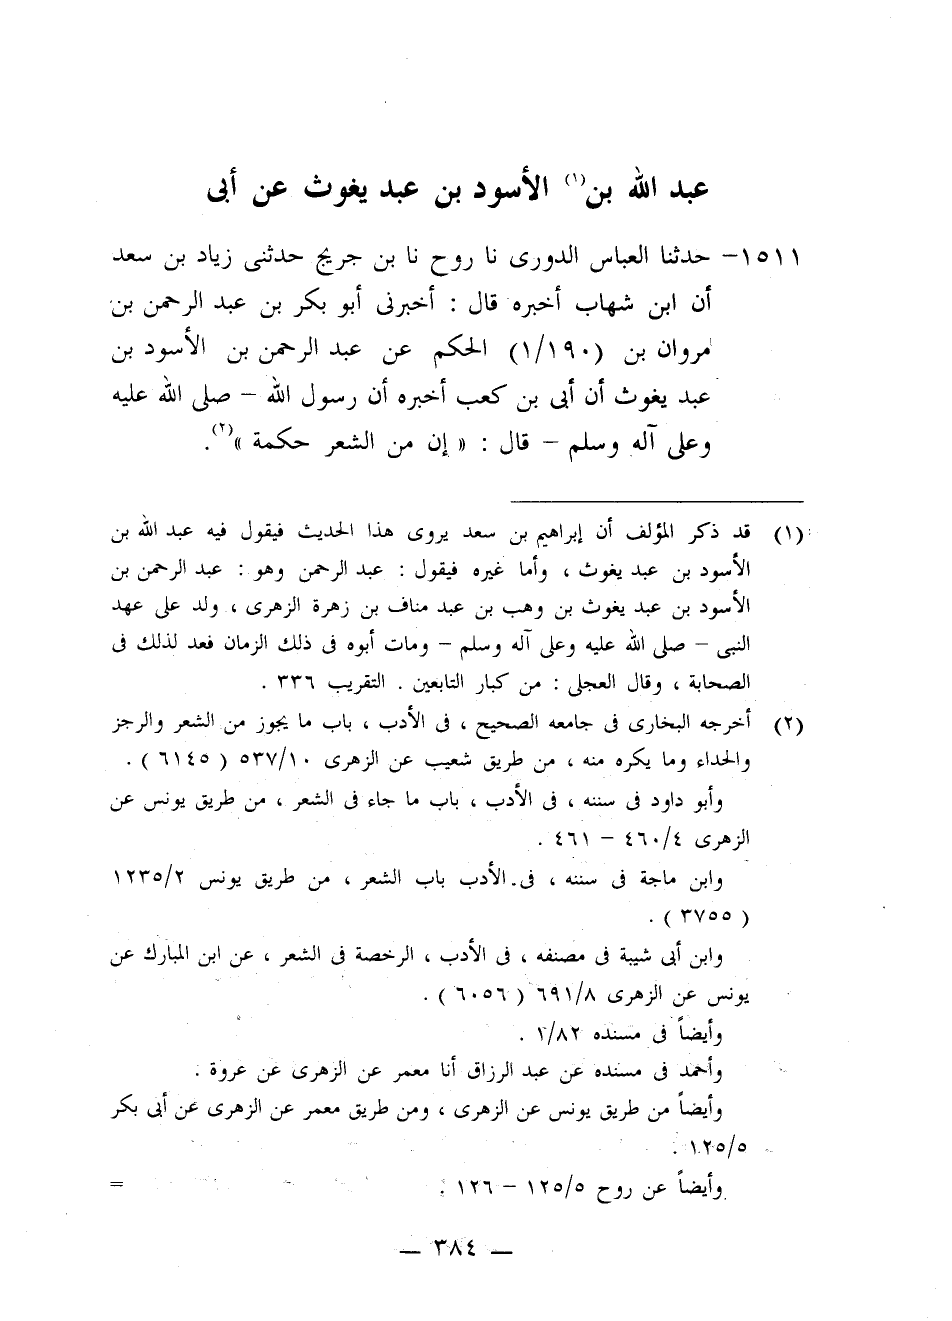 عبد الله بن(١) الأسود بن عبد يغوث عن أبى
١٥١١- حدثنا العباس الدورى نا روح نا بن جريج حدثنى زياد بن سعد
أن ابن شهاب أخبره قال : أخبرنى أبو بكر بن عبد الرحمن بن
مروان بن (١/١٩٠) الحكم عن عبد الرحمن بن الأسود بن
عبد يغوث أن أبى بن كعب أخبره أن رسول الله - صلى الله عليه
وعلى آله وسلم - قال : « إن من الشعر حكمة »(٢).
(١) قد ذكر المؤلف أن إبراهيم بن سعد يروى هذا الحديث فيقول فيه عبد الله بن
الأسود بن عبد يغوث ، وأما غيره فيقول : عبد الرحمن وهو : عبد الرحمن بن
الأسود بن عبد يغوث بن وهب بن عبد مناف بن زهرة الزهرى ، ولد على عهد
النبى - صلى الله عليه وعلى آله وسلم - ومات أبوه فى ذلك الزمان فعد لذلك فى
الصحابة ، وقال العجلى : من كبار التابعين . التقريب ٣٣٦ .
(٢) أخرجه البخارى فى جامعه الصحيح ، فى الأدب ، باب ما يجوز من الشعر والرجز
والحداء وما يكره منه ، من طريق شعيب عن الزهرى ٥٣٧/١٠ ( ٦١٤٥ ) .
وأبو داود فى سننه ، فى الأدب ، باب ما جاء فى الشعر ، من طريق يونس عن
الزهرى ٤٦٠/٤ - ٤٦١ .
وابن ماجة فى سننه ، فى الأدب باب الشعر ، من طريق يونس ١٢٣٥/٢
( ٣٧٥٥ ) .
وابن أبى شيبة فى مصنفه ، فى الأدب ، الرخصة فى الشعر ، عن ابن المبارك عن
يونس عن الزهرى ٦٩١/٨ ( ٦٠٥٦ ) .
وأيضاً فى مسنده ١/٨٢ .
وأحمد فى مسنده عن عبد الرزاق أنا معمر عن الزهرى عن عروة .
وأيضاً من طريق يونس عن الزهرى ، ومن طريق معمر عن الزهرى عن أبى بكر
١٢٥/٥ .
وأيضاً عن روح ١٢٥/٥ - ١٢٦ . =
— ٣٨٤ —